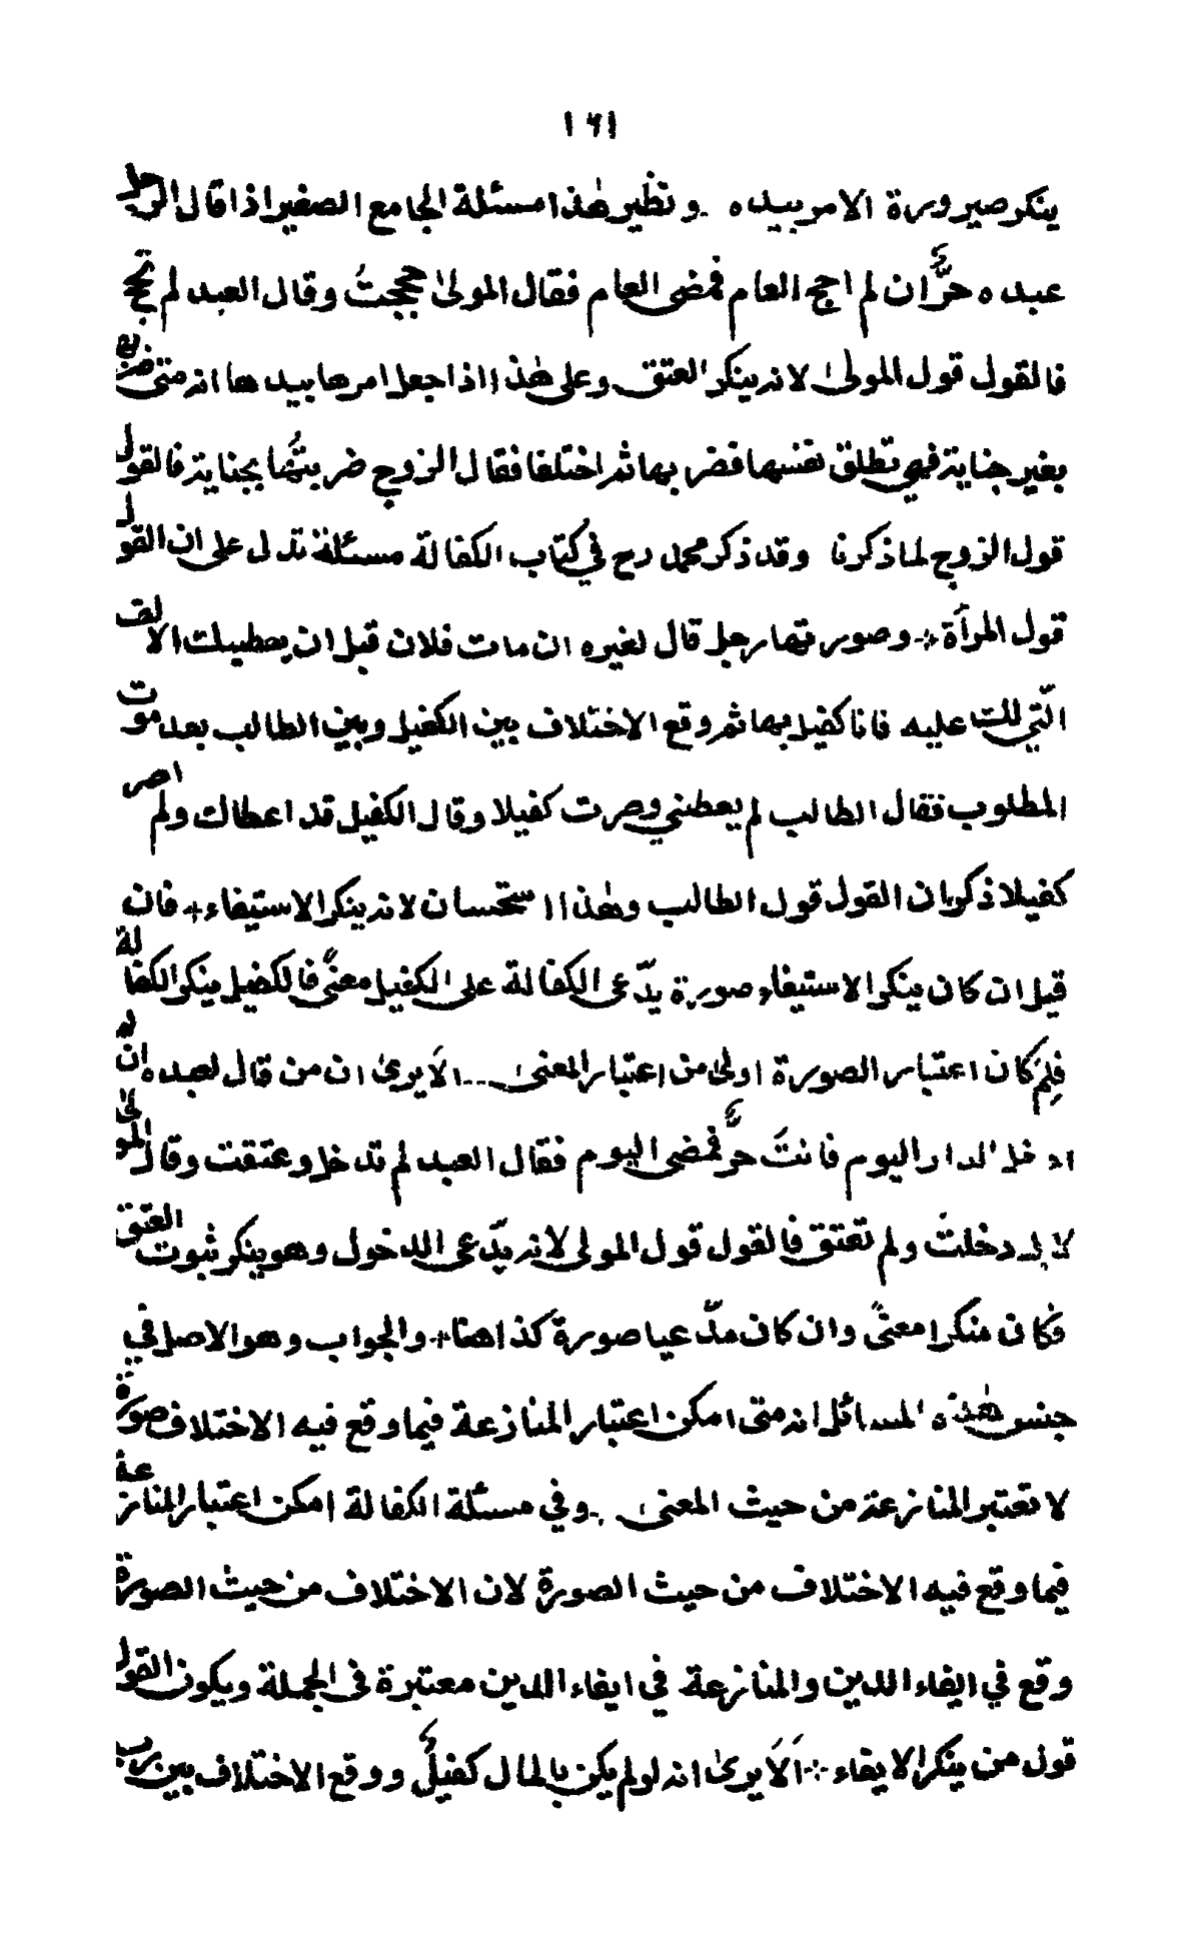 ١٦١
ينكر صيرورة الامر بيده . و نظير هٰذا مسئلة الجامع الصغير اذا قال الرجل
عبده حرٌّ ان لم احج العام فمضى العام فقال المولىٰ حججتُ وقال العبد لم تحج
فالقول قول المولىٰ لانه ينكر العتق وعلى هٰذا اذا جعل امرها بيدها انه متى ضربها
بغير جناية فهي تطلق نفسها فضربها ثم اختلفا فقال الزوج ضربتُها بجناية فالقول
قول الزوج لما ذكرنا وقد ذكر محمد رح في كتاب الكفالة مسئلة تدل على ان القول
قول المرأة ÷ وصورتها رجل قال لغيره ان مات فلان قبل ان يعطيك الالف
الّتي لك عليه فانا كفيل بها ثم وقع الاختلاف بين الكفيل وبين الطالب بعد موت
المطلوب فقال الطالب لم يعطني وصرت كفيلا وقال الكفيل قد اعطاك ولم اصر
كفيلا ذكر ان القول قول الطالب وهٰذا استحسان لانه ينكر الاستيفاء + فان
قيل ان كان ينكر الاستيفاء صورة يدّعى الكفالة على الكفيل معنًى فالكفيل ينكر الكفالة
فلِمَ كان اعتبار الصورة اولىٰ من اعتبار المعنىٰ ... الَا يرىٰ ان من قال لعبده ان لم
ادخل الدار اليوم فانتَ حرٌّ فمضى اليوم فقال العبد لم تدخل وعتقت وقال المولىٰ
لا بل دخلتُ ولم تعتق فالقول قول المولى لانه يدّعى الدخول وهو ينكر ثبوت العتق
فكان منكرا معنًى وان كان مدّعيا صورة كذا هنا + والجواب وهو الاصل في
جنس هٰذه المسائل انه متى امكن اعتبار المنازعة فيما وقع فيه الاختلاف صورة
لا تعتبر المنازعة من حيث المعنىٰ . وفي مسئلة الكفالة امكن اعتبار المنازعة
فيما وقع فيه الاختلاف من حيث الصورة لان الاختلاف من حيث الصورة
وقع في ايفاء الدين والمنازعة في ايفاء الدين معتبرة فى الجملة ويكون القول
قول من ينكر الايفاء ÷ اَلَا يرىٰ انه لو لم يكن بالمال كفيلٌ ووقع الاختلاف بين رب